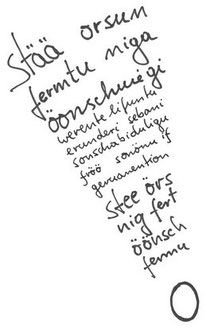 Stää orsun
fermtu niga
öönschwiegi
werente lifunte
erunderi sebani
sonschabiduligu
fröö sonönu if
germanention
stee örs
nig fert
öönsch
fermu
O